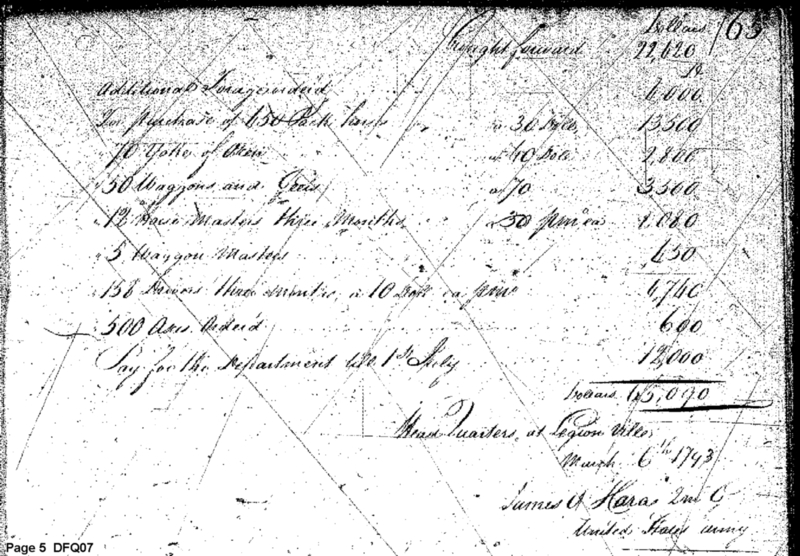 Dollars /65
Brought forward 22,420
Additional Forage ordered 4,000
For purchase of 450 Pack horses a 30 Dolls 13500
70 Yoke of Oxen a 40 Dols 2,800
50 Waggons and Geers a 70 3500
12 Horse Masters three Months a 30 pm ea 1,080
5 Waggon Masters 450
158 Drivers three months a 10 Dolls ea pm 4,740
500 Axes Ordered 600
Pay for the Department till 1st July 12,000
Dollars 65,090
Head Quarters, at Legion Ville,
March 6th 1793
James O Hara 2m G
United States army
Page 5 DFQ07